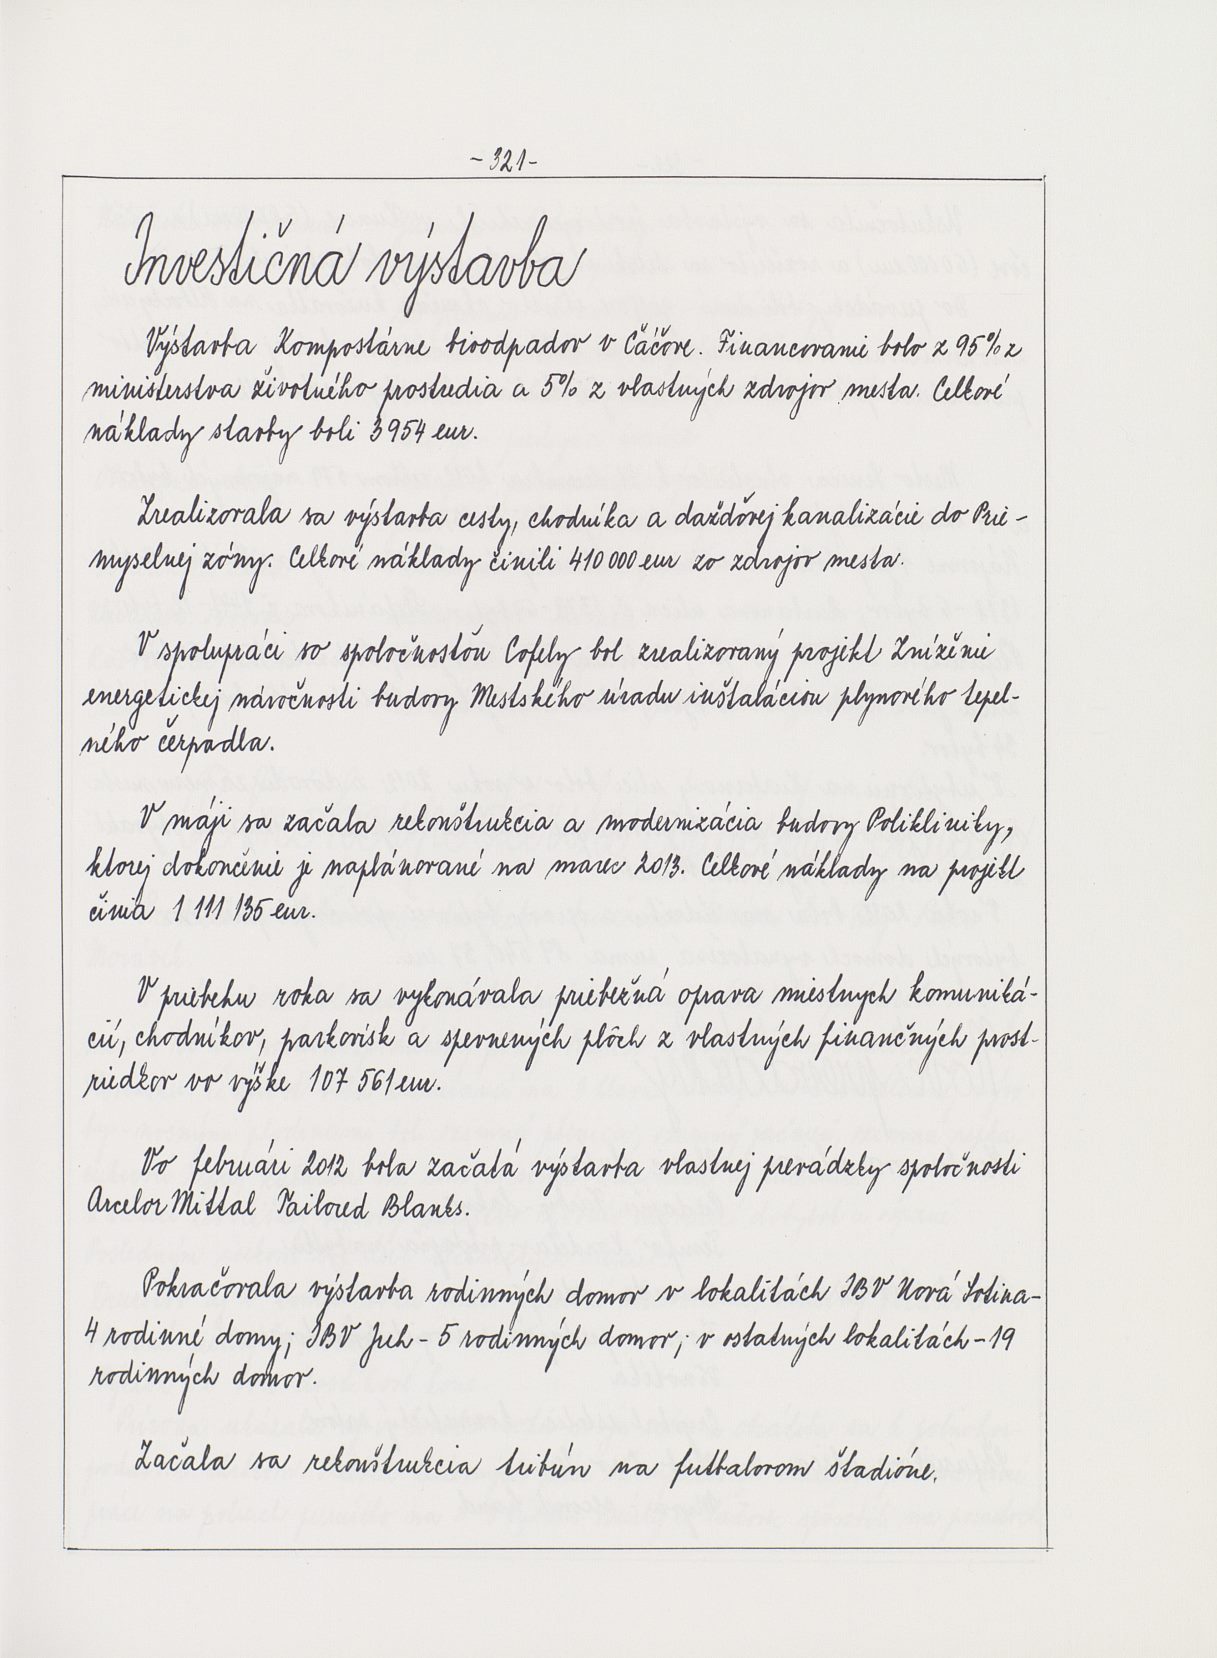 -321-
Investičná výstavba
Výstavba Kompostárne bioodpadov v Čáčove. Financovanie bolo z 95% z
ministerstva životného prostredia a 5% z vlastných zdrojov mesta. Celkové
náklady stavby boli 3 954 eur.
Zrealizovala sa výstavba cesty, chodníka a dažďovej kanalizácie do Prie-
myselnej zóny. Celkové náklady činili 410 000 eur zo zdrojov mesta.
V spolupráci so spoločnosťou Cofely bol zrealizovaný projekt Zníženie
energetickej náročnosti budovy Mestského úradu inštaláciou plynového tepel-
ného čerpadla.
V máji sa začala rekonštrukcia a modernizácia budovy Polikliniky,
ktorej dokončenie je naplánované na marec 2013. Celkové náklady na projekt
činia 1 111 135 eur.
V priebehu roka sa vykonávala priebežná oprava miestnych komuniká-
cií, chodníkov, parkovísk a spevnených plôch z vlastných finančných prost-
riedkov vo výške 107 561 eur.
Vo februári 2012 bola začatá výstavba vlastnej prevádzky spoločnosti
Arcelor Mittal Tailored Blanks.
Pokračovala výstavba rodinných domov v lokalitách IBV Nová Sotina-
4 rodinné domy; IBV Juh - 5 rodinných domov; v ostatných lokalitách - 19
rodinných domov.
Začala sa rekonštrukcia tribún na futbalovom štadióne.